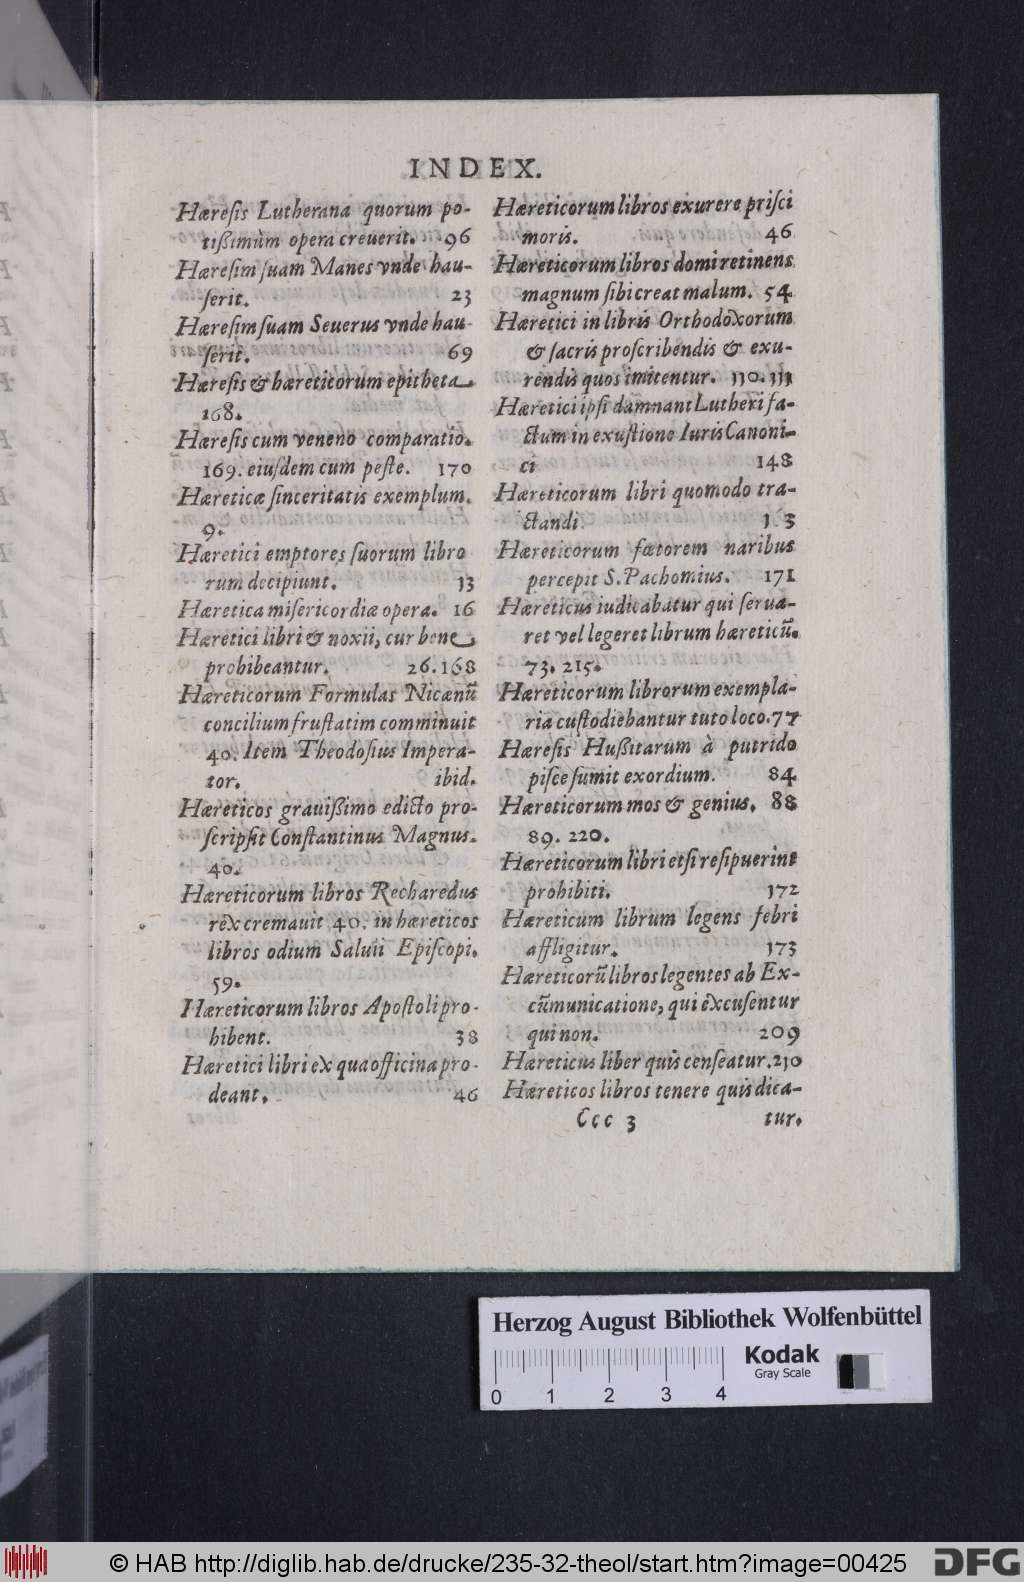 INDEX.
Hæresis Lutherana quorum po-
tißimùm opera creuerit. 96
Hæresim suam Manes vnde hau-
serit. 23
Hæresim suam Seuerus vnde hau-
serit. 69
Hæresis & hæreticorum epitheta
168.
Hæresis cum veneno comparatio.
169. eiusdem cum peste. 170
Hæreticæ sinceritatis exemplum.
9.
Hæretici emptores suorum libro
rum decipiunt. 13
Hæretica misericordiæ opera. 16
Hæretici libri & noxii, cur bene
prohibeantur. 26.168
Hæreticorum Formulas Nicænū
concilium frustatim comminuit
40. Item Theodosius Impera-
tor. ibid.
Hæreticos grauißimo edicto pro-
scripsit Constantinus Magnus.
40.
Hæreticorum libros Recharedus
rex cremauit 40. in hæreticos
libros odium Saluii Episcopi.
59.
Hæreticorum libros Apostoli pro-
hibent. 38
Hæretici libri ex qua officina pro-
deant. 46
Hæreticorum libros exurere prisci
moris. 46
Hæreticorum libros domi retinens
magnum sibi creat malum. 54
Hæretici in libris Orthodoxorum
& sacris proscribendis & exu-
rendis quos imitentur. 110.111
Hæretici ipsi damnant Lutheri fa-
ctum in exustione Iuris Canoni-
ci 148
Hæreticorum libri quomodo tra-
ctandi
Hæreticorum fœtorem naribus
percepit S. Pachomius. 171
Hæreticus iudicabatur qui serua-
ret vel legeret librum hæreticū.
73. 215.
Hæreticorum librorum exempla-
ria custodiebantur tuto loco. 77
Hæresis Hußitarum à putrido
pisce sumit exordium. 84
Hæreticorum mos & genius. 88
89. 220.
Hæreticorum libri etsi resipuerint
prohibiti. 172
Hæreticum librum legens febri
affligitur. 173
Hæreticorū libros legentes ab Ex-
cūmunicatione, qui excusentur
qui non. 209
Hæreticus liber quis censeatur. 210
Hæreticos libros tenere quis dica-
Ccc 3 tur.
Herzog August Bibliothek Wolfenbüttel
Kodak
Gray Scale
0 1 2 3 4
© HAB http://diglib.hab.de/drucke/235-32-theol/start.htm?image=00425
DFG